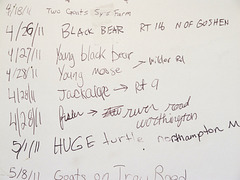 4/18/11 Two Goats: 5yr Farm
4/26/11 BLACK BEAR RT 116 N OF GOSHEN
4/27/11 Young black bear
4/28/11 Young moose > Wilder Rd
4/28/11 Jackalope → Rt 9
4/28/11 → river road worthington
5/1/11 HUGE turtle, northampton M
5/8/11 Goats on Road